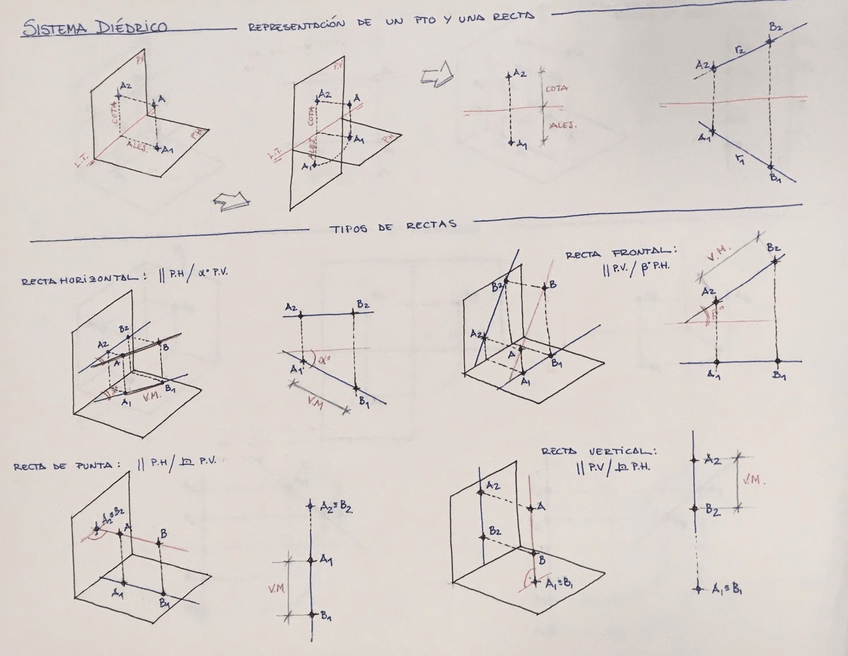 SISTEMA DIÉDRICO
REPRESENTACIÓN DE UN PTO Y UNA RECTA
P.V.
A2
A
COTA
ALEJ.
A1
L.T.
P.H.
P.V.
A2
A
COTA
ALEJ.
A1
A1
L.T.
P.H.
A2
COTA
ALEJ.
A1
B2
r2
A2
A1
r1
B1
TIPOS DE RECTAS
RECTA HORIZONTAL: || P.H / α° P.V.
B2
A2
A
B
A1
V.M.
B1
A2
B2
A1
α°
V.M
B1
RECTA FRONTAL:
|| P.V. / β° P.H.
B2
B
A2
A
B1
A1
V.M.
B2
A2
β°
A1
B1
RECTA DE PUNTA: || P.H / ⊥ P.V.
A2≡B2
A
B
A1
B1
A2≡B2
A1
V.M
B1
RECTA VERTICAL:
|| P.V / ⊥ P.H.
A2
A
B2
B
A1≡B1
A2
V.M.
B2
A1≡B1